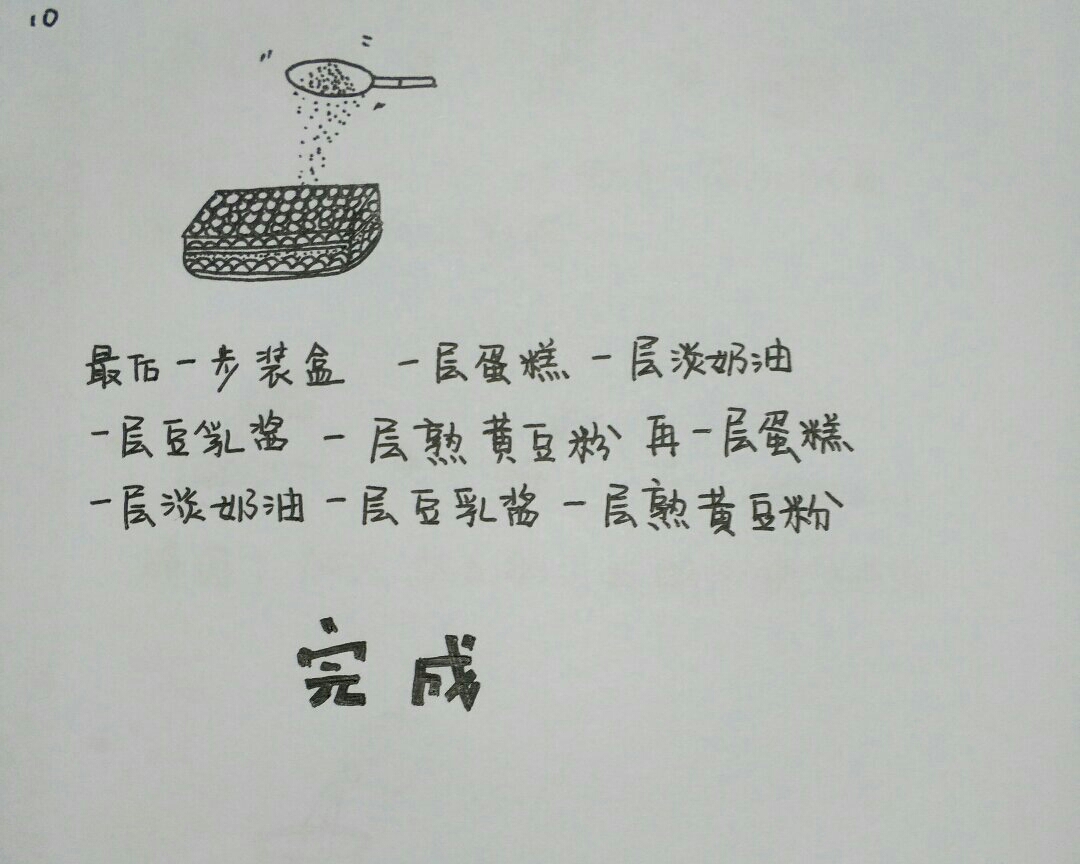 10
最后一步装盒 一层蛋糕 一层淡奶油
一层豆乳酱 一层熟黄豆粉 再一层蛋糕
一层淡奶油 一层豆乳酱 一层熟黄豆粉
完成